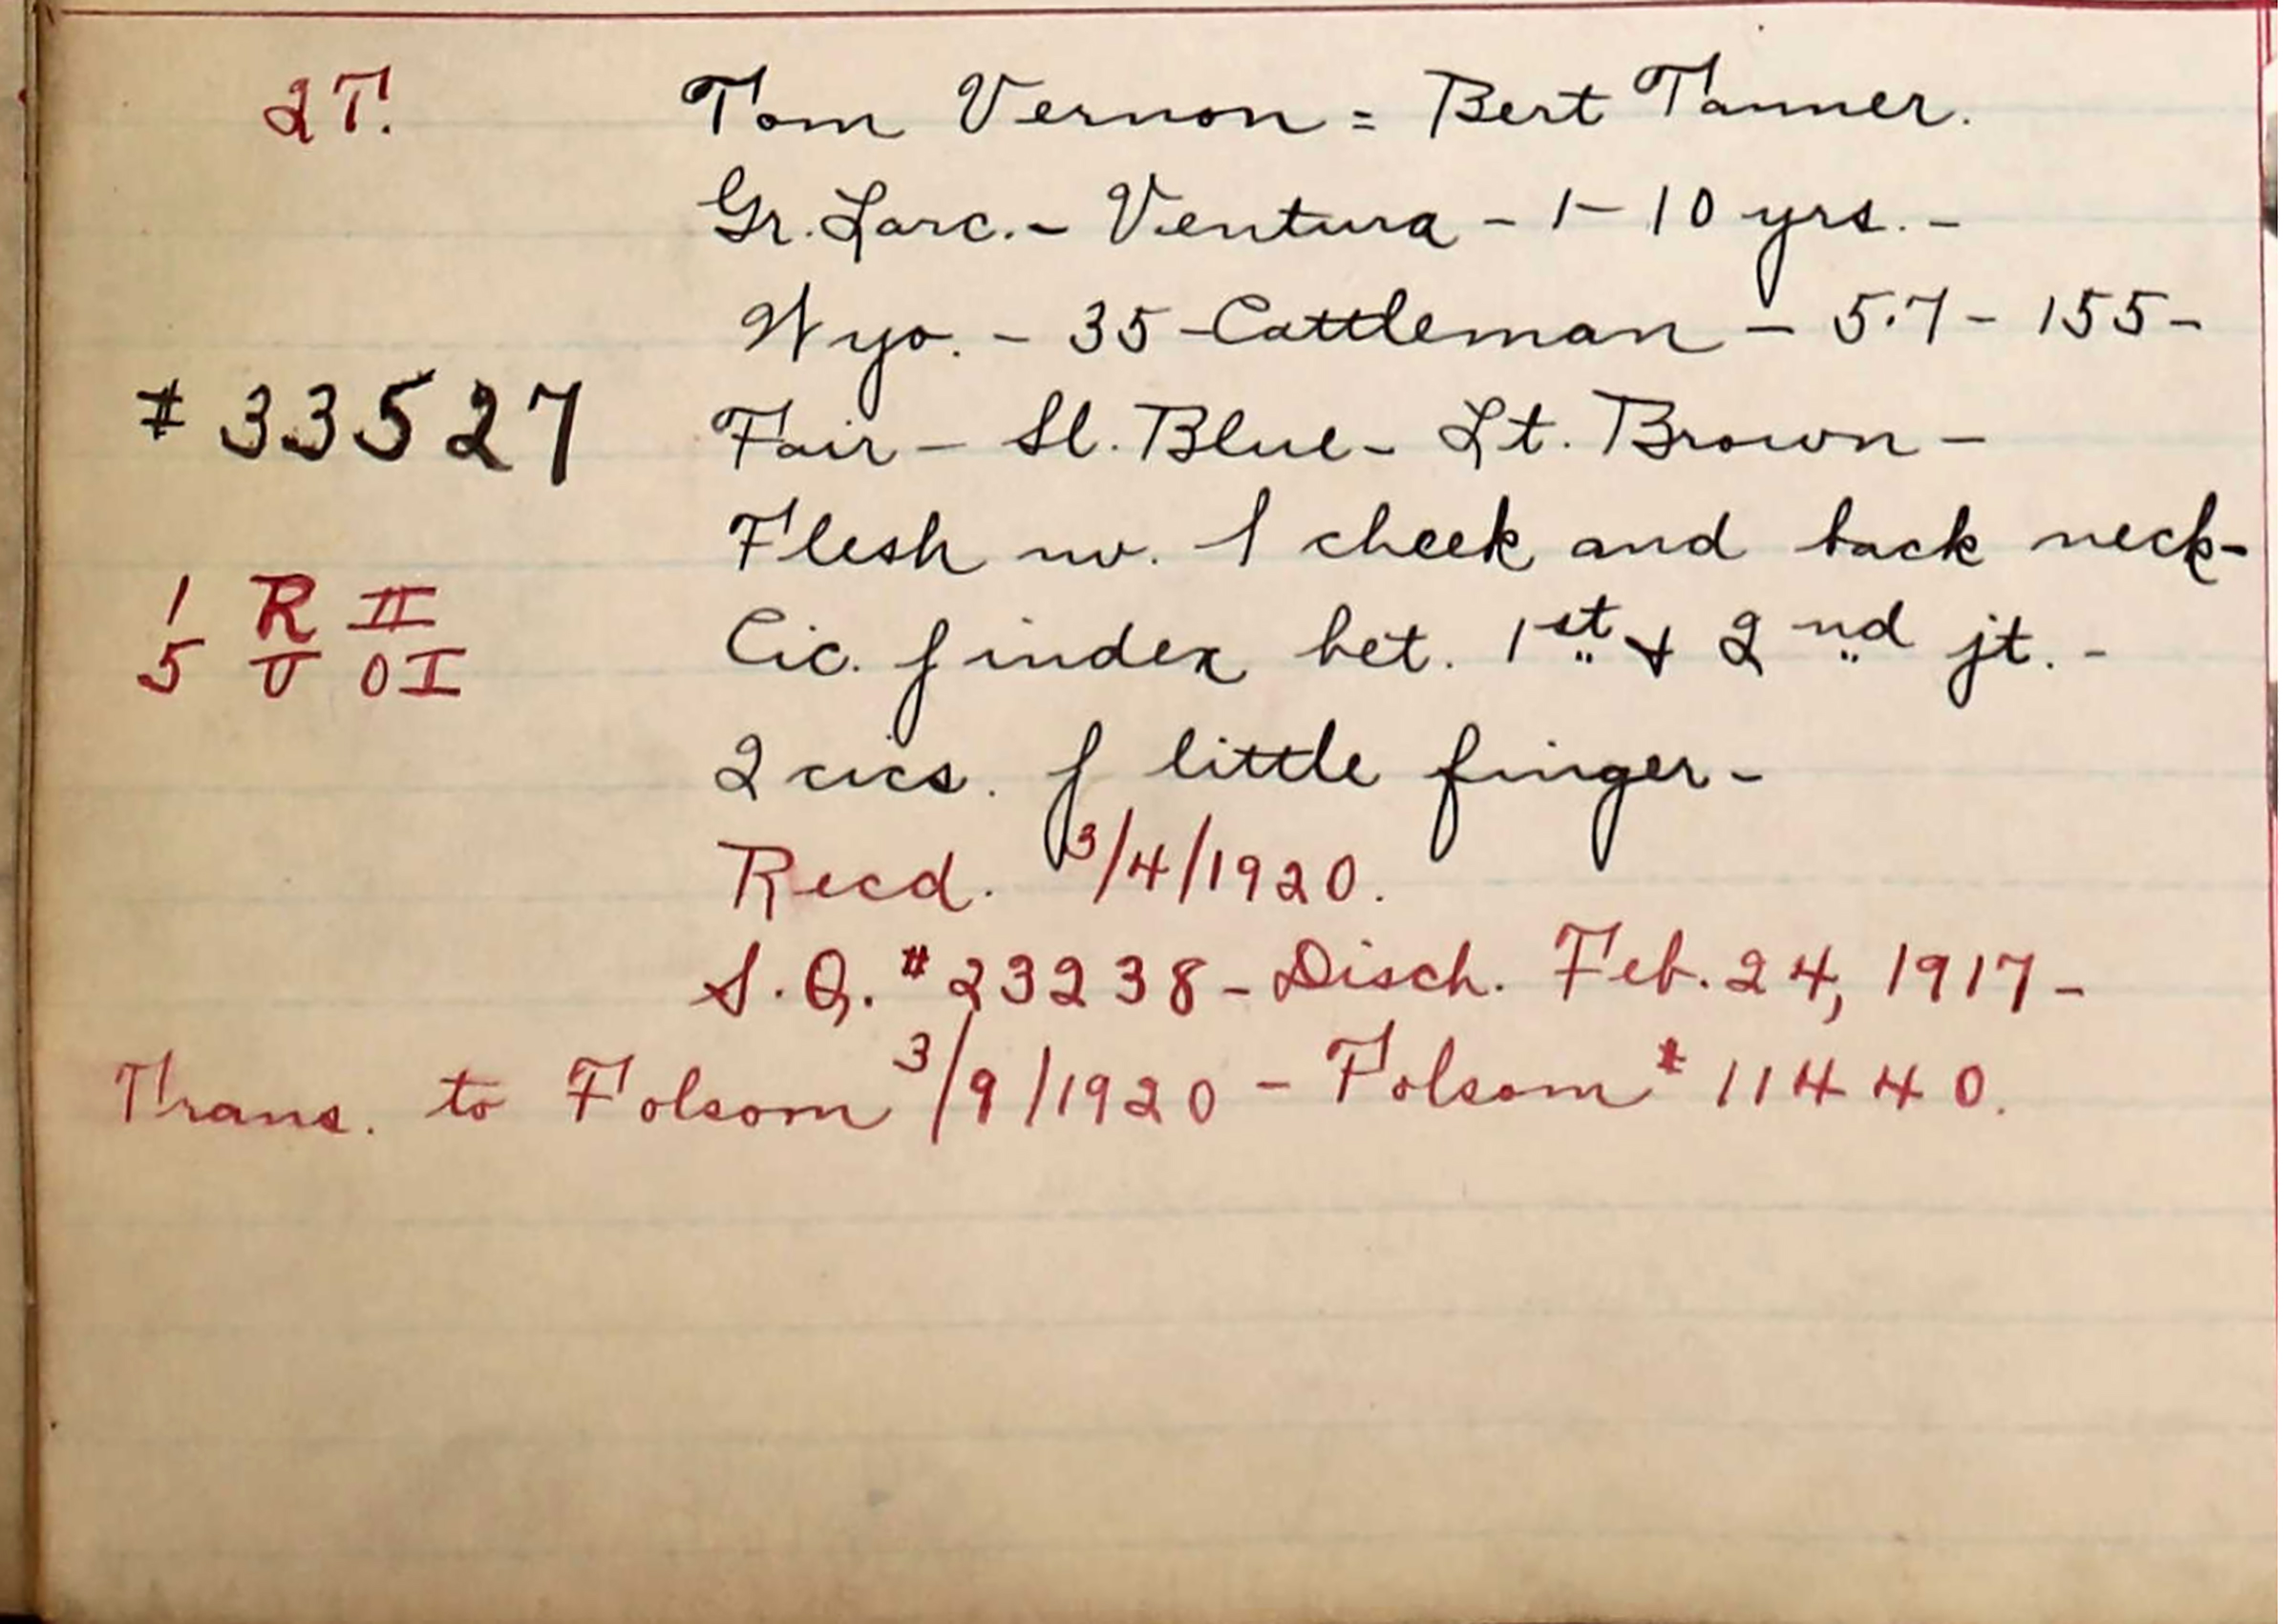 2T. Tom Vernon = Bert Tanner.
Gr. Larc. - Ventura - 1-10 yrs. -
Wyo. - 35 - Cattleman - 5.7 - 155 -
# 33527 Fair - Sl. Blue - Lt. Brown -
Flesh m. l cheek and back neck -
1 R II
5 U OI Cic. f index bet. 1st & 2nd jt. -
2 cics. f little finger -
Recd. 3/4/1920.
S.Q. # 23238 - Disch. Feb. 24, 1917 -
Trans. to Folsom 3/9/1920 - Folsom # 11440.